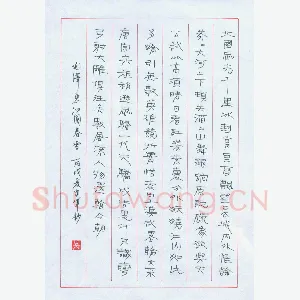 北國風光千里冰封萬里雪飄望長城內外惟餘
莽大河上下頓失滔滔山舞銀蛇原馳蠟象欲與天
公試比高須晴日看紅裝素裹分外妖嬈江山如此
多嬌引無數英雄競折腰惜秦皇漢武略輸文采
唐宗宋祖稍遜風騷一代天驕成吉思汗只識彎
弓射大雕俱往矣數風流人物還看今朝
毛澤東沁園春雪 丙戌夏 抄
Shufawang.CN